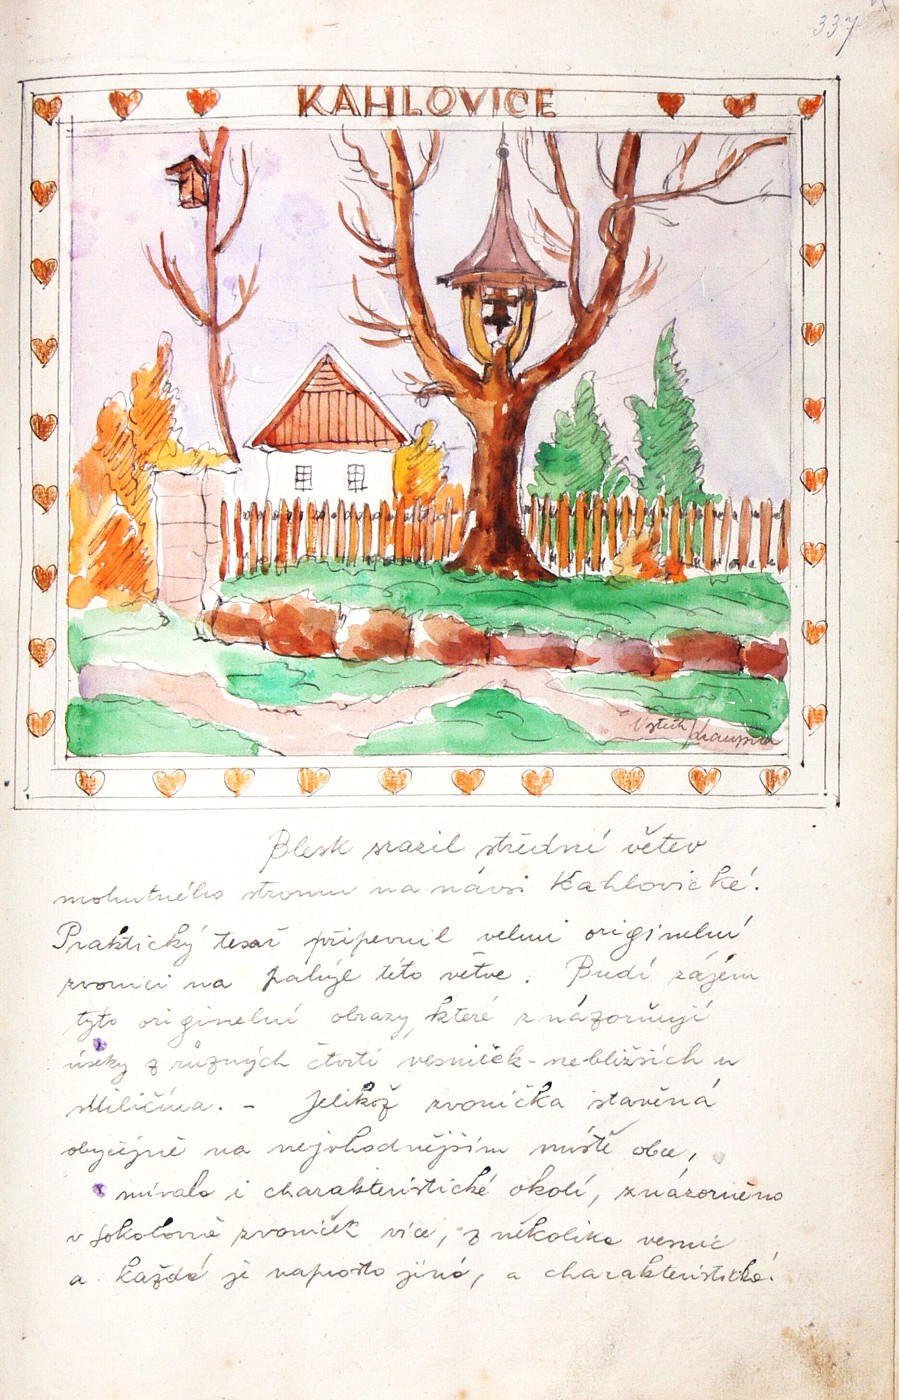 337
KAHLOVICE
Vojtěch
Blesk srazil střední větev
mohutného stromu na návsi Kahlovické.
Praktický tesař připevnil velmi originelní
zvonici na pahýl této větve. Budí zájem
tyto originelní obrazy, které znázorňují
úseky z různých čtvrtí vesniček - nebližších u
Miličína. - Jelikož zvonička stavěná
obyčejně na nejvhodnějším místě obce,
mívala i charakteristické okolí, znázorněno
v Sokolovně zvoniček více, z několika vesnic
a každá je naprosto jiná, a charakteristická.